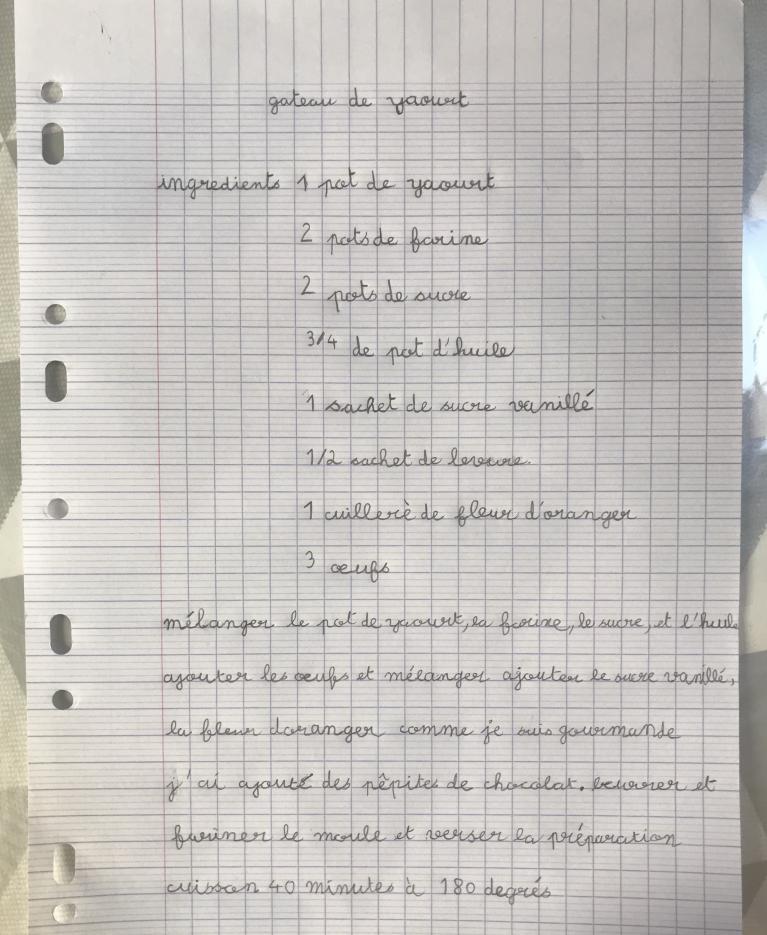 gateau de yaourt
ingredients 1 pot de yaourt
2 pots de farine
2 pots de sucre
3/4 de pot d'huile
1 sachet de sucre vanillé
1/2 sachet de levure.
1 cuillerè de fleur d'oranger
3 œufs
mélanger le pot de yaourt, la farine, le sucre, et l'huile
ajouter les œufs et mélanger ajouter le sucre vanillé,
la fleur doranger comme je suis gourmande
j'ai ajouté des pêpites de chocolat. beurrer et
fariner le moule et verser la préparation
cuisson 40 minutes à 180 degrés